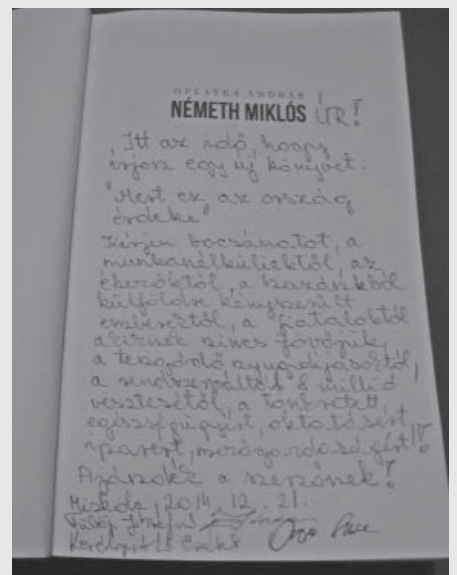 OPLATKA ANDRÁS
NÉMETH MIKLÓS ÚR!
Itt az idő, hogy
írjon egy új könyvet.
"Mert ez az ország
érdeke"
Kérjen bocsánatot, a
munkanélküliektől, az
éhezőktől, a hazánkból
külföldre kényszerült
emberektől, a fiataloktól
akiknek nincs jövőjük,
a tengődő nyugdíjasoktól,
a rendszerváltás 8 millió
vesztesétől, a tönkretett
egészségügyért, oktatásért,
iparért, mezőgazdaságért!!
Ajánlók a szerzőnek!
Miskolc, 2014. 12. 21.